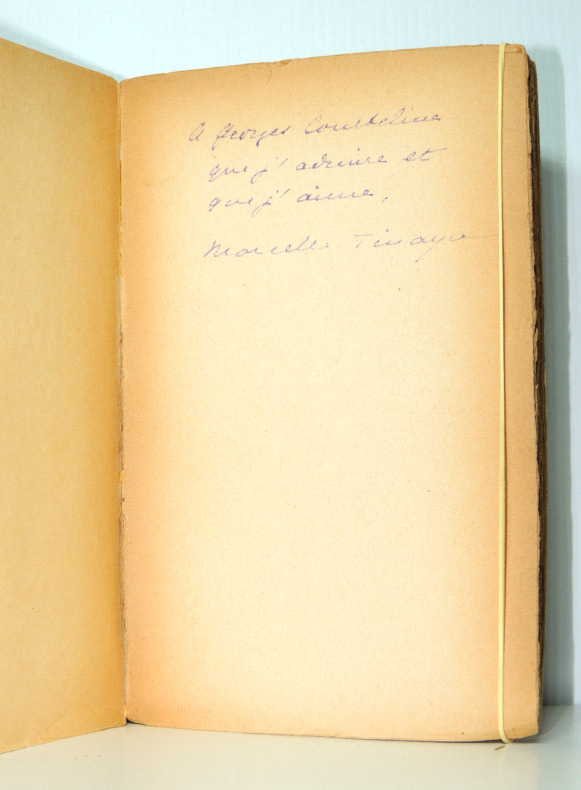 A Georges Courteline
que j'admire et
que j'aime,
Marcelle Tinayre